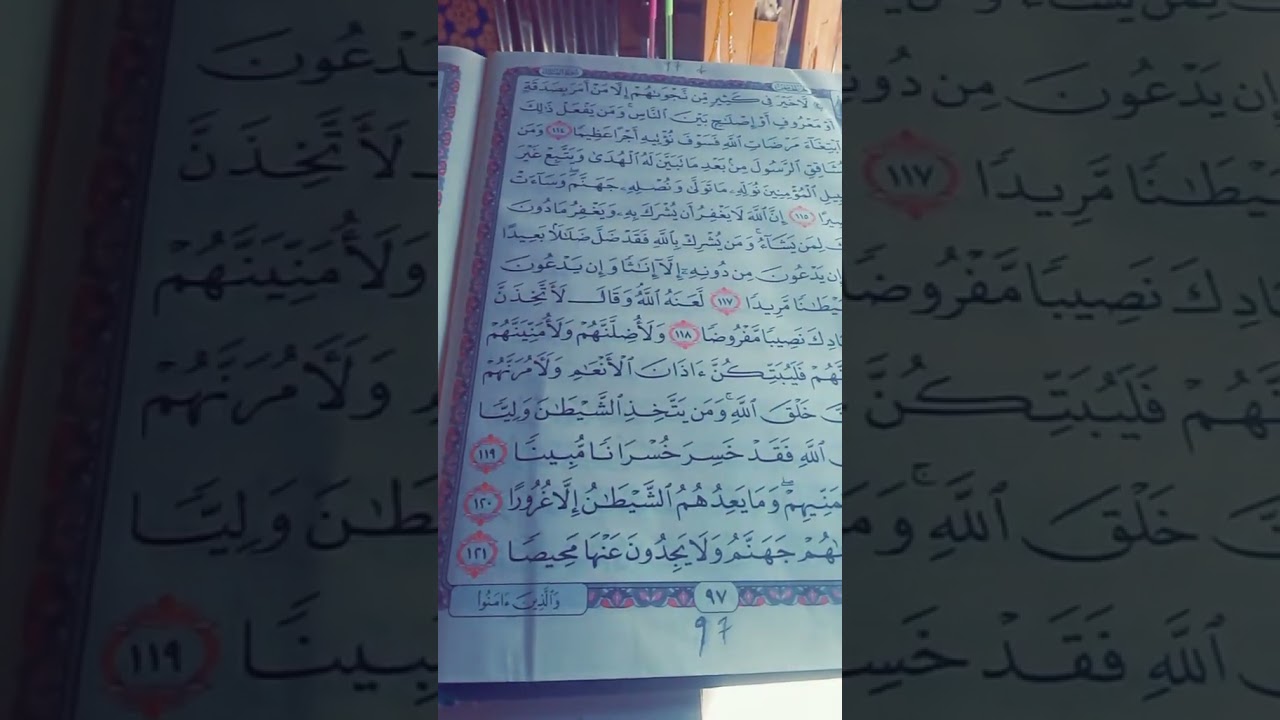 لَا خَيْرَ فِي كَثِيرٍ مِّن نَّجْوَىٰهُمْ إِلَّا مَنْ أَمَرَ بِصَدَقَةٍ
أَوْ مَعْرُوفٍ أَوْ إِصْلَٰحٍۭ بَيْنَ ٱلنَّاسِۚ وَمَن يَفْعَلْ ذَٰلِكَ
ٱبْتِغَآءَ مَرْضَاتِ ٱللَّهِ فَسَوْفَ نُؤْتِيهِ أَجْرًا عَظِيمًا ١١٤ وَمَن
يُشَاقِقِ ٱلرَّسُولَ مِنۢ بَعْدِ مَا تَبَيَّنَ لَهُ ٱلْهُدَىٰ وَيَتَّبِعْ غَيْرَ
بِيلِ ٱلْمُؤْمِنِينَ نُوَلِّهِۦ مَا تَوَلَّىٰ وَنُصْلِهِۦ جَهَنَّمَۖ وَسَآءَتْ
يرًا ١١٥ إِنَّ ٱللَّهَ لَا يَغْفِرُ أَن يُشْرَكَ بِهِۦ وَيَغْفِرُ مَا دُونَ
لِمَن يَشَآءُۚ وَمَن يُشْرِكْ بِٱللَّهِ فَقَدْ ضَلَّ ضَلَٰلًۢا بَعِيدًا
إِن يَدْعُونَ مِن دُونِهِۦٓ إِلَّآ إِنَٰثًا وَإِن يَدْعُونَ
يْطَٰنًا مَّرِيدًا ١١٧ لَّعَنَهُ ٱللَّهُۘ وَقَالَ لَأَتَّخِذَنَّ
ادِكَ نَصِيبًا مَّفْرُوضًا ١١٨ وَلَأُضِلَّنَّهُمْ وَلَأُمَنِّيَنَّهُمْ
نَّهُمْ فَلَيُبَتِّكُنَّ ءَاذَانَ ٱلْأَنْعَٰمِ وَلَءَامُرَنَّهُمْ
نَّ خَلْقَ ٱللَّهِۚ وَمَن يَتَّخِذِ ٱلشَّيْطَٰنَ وَلِيًّا
ٱللَّهِ فَقَدْ خَسِرَ خُسْرَانًا مُّبِينًا ١١٩
مَنِّيهِمْۖ وَمَا يَعِدُهُمُ ٱلشَّيْطَٰنُ إِلَّا غُرُورًا ١٢٠
ىٰهُمْ جَهَنَّمُ وَلَا يَجِدُونَ عَنْهَا مَحِيصًا ١٢١
وَٱلَّذِينَ ءَامَنُوا۟
٩٧
97